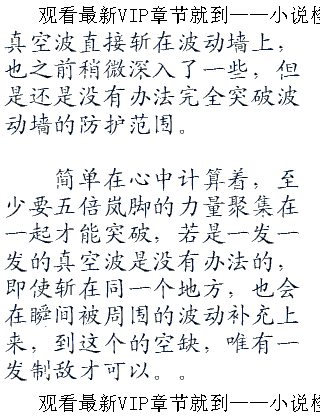 观看最新VIP章节就到——小说
真空波直接斩在波动墙上，
也之前稍微深入了一些，但
是还是没有办法完全突破波
动墙的防护范围。
简单在心中计算着，至
少要五倍岚脚的力量聚集在
一起才能突破，若是一发一
发的真空波是没有办法的，
即使斩在同一个地方，也会
在瞬间被周围的波动补充上
来，到这个的空缺，唯有一
发制敌才可以。。
观看最新VIP章节就到——小说